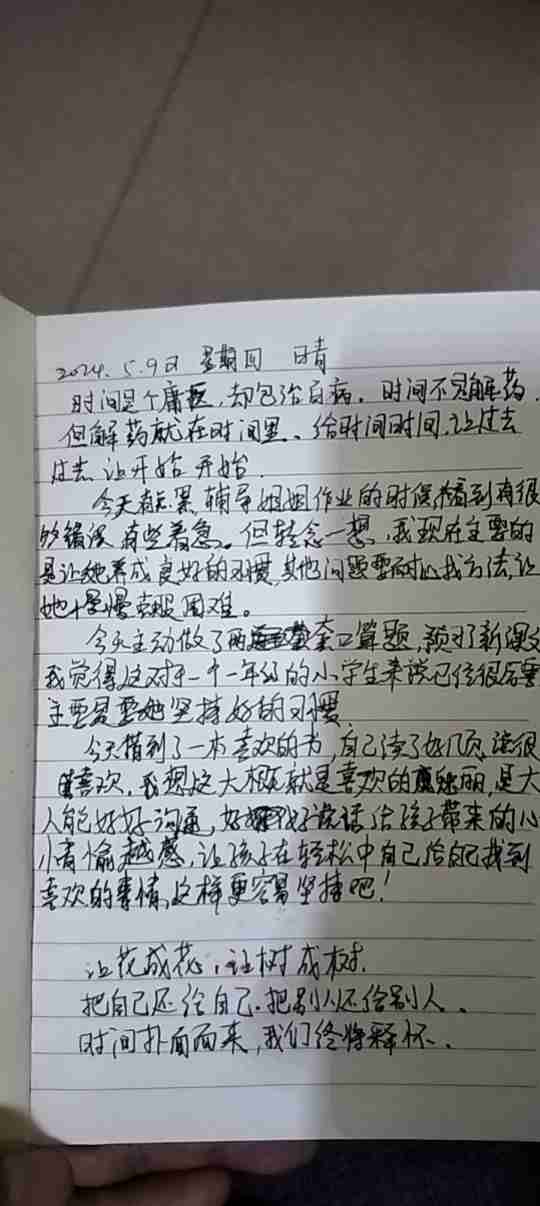 2024. 5.9日 星期四 晴
时间是个庸医,却包治百病。时间不是解药,
但解药就在时间里、给时间时间,让过去
过去,让开始开始.
今天在家辅导姐姐作业的时候,看到有很
多错误有些着急。但转念一想,我现在主要的
是让她养成良好的习惯,其他问题要耐心找方法,让
她慢慢克服困难。
今天主动做了两套口算题,预习了新课文
我觉得这对于一个一年级的小学生来说已经很厉害
主要是要她坚持好的习惯.
今天借到了一本喜欢的书,自己读了好几页,说很
喜欢,我想这大概就是喜欢的魔力,是大
人能好好沟通,好好说话给孩子带来的小
小有愉越感,让孩子在轻松中自己给自己找到
喜欢的事情,这样更容易坚持吧!
让花成花,让树成树.
把自己还给自己.把别人还给别人.
时间扑面而来,我们终将释怀.